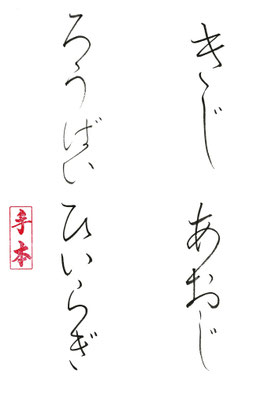 きじ
あおじ
ろうばい
ひいらぎ
手本